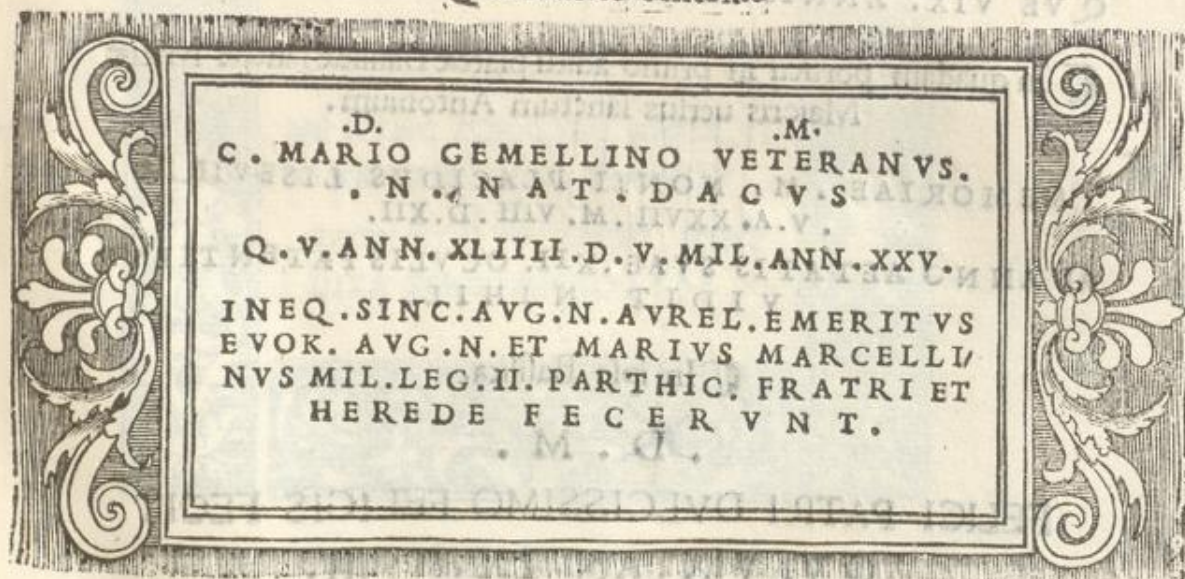 .D. .M.
C. MARIO GEMELLINO VETERANVS.
. N.. NAT. DACVS
Q.V.ANN.XLIIII.D.V.MIL.ANN.XXV.
INEQ.SINC.AVG.N.AVREL.EMERITVS
EVOK. AVG.N.ET MARIVS MARCELLI/
NVS MIL.LEG.II. PARTHIC. FRATRI ET
HEREDE FECERVNT.